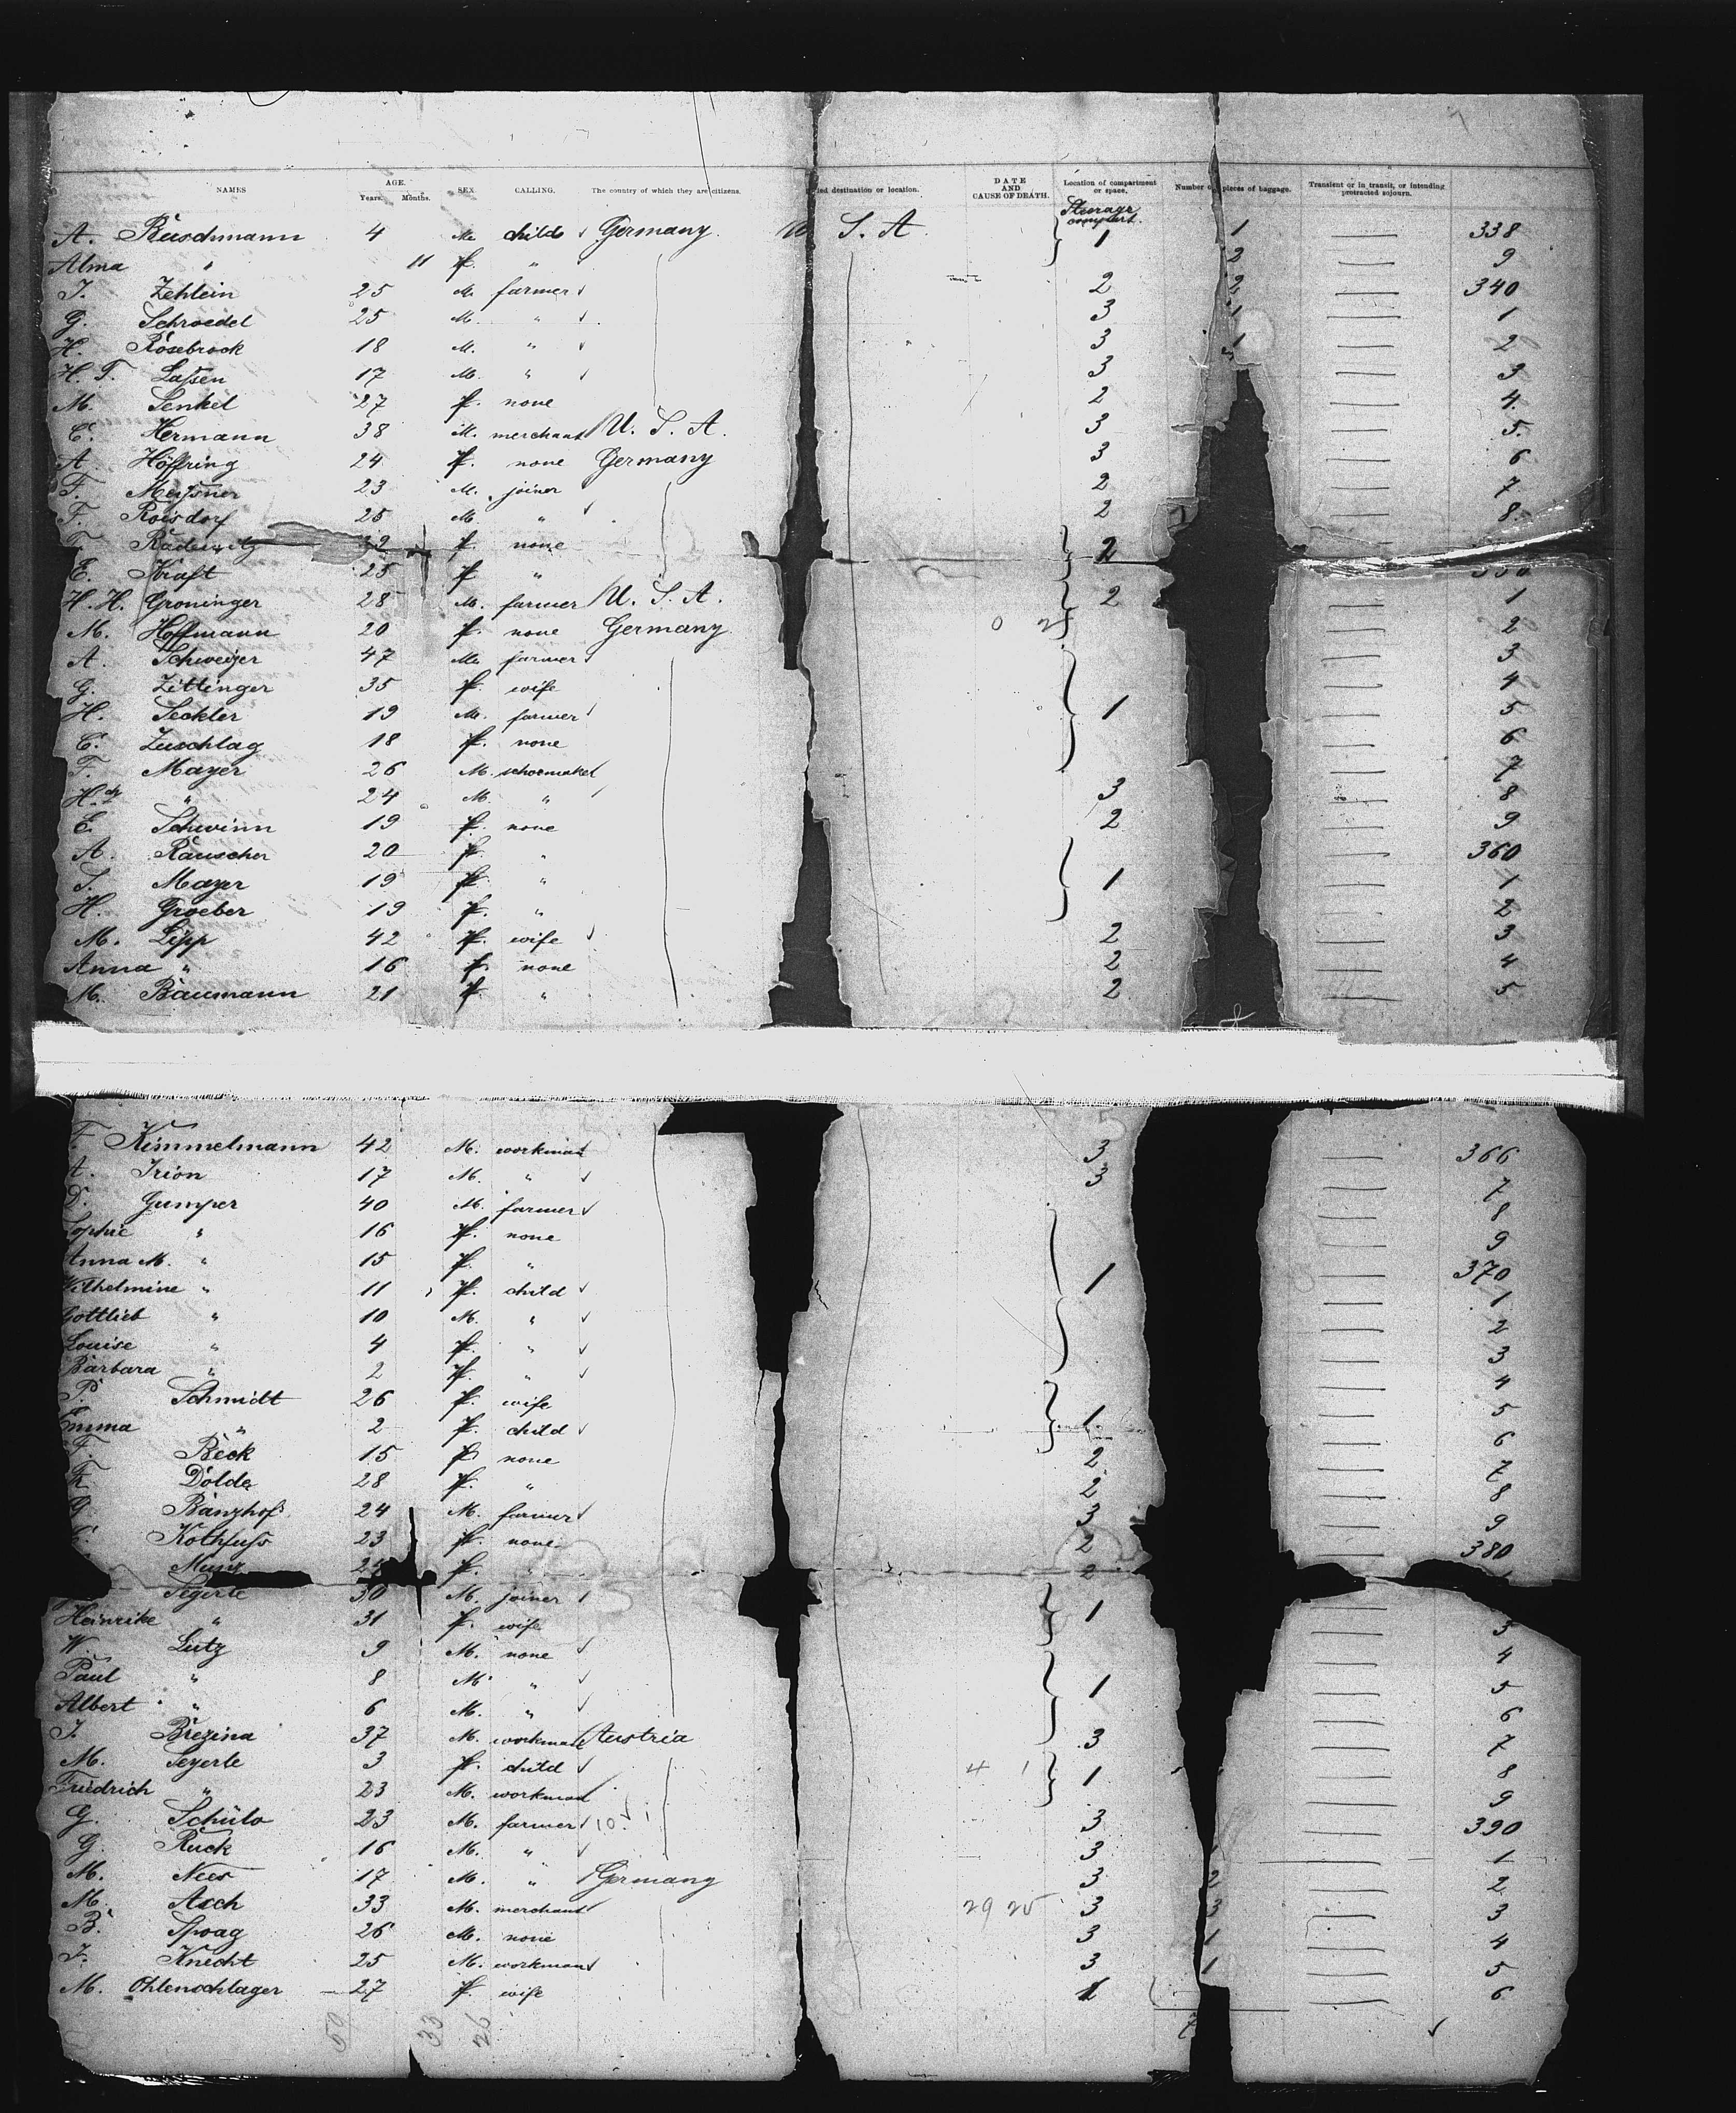 NAMES AGE. Years. Months. SEX. CALLING. The country of which they are citizens. destination or location. DATE AND CAUSE OF DEATH. Location of compartment or space. Number of pieces of baggage. Transient or in transit, or intending protracted sojourn.
Steerage compart.
A. Buschmann 4 M. child Germany U. S. A. 1 1 338
Alma " 11 f. " 2 9
J. Zehlein 25 M. farmer 2 2 340
G. Schroedel 25 M. " 3 1 1
H. Rosebrock 18 M. " 3 1 2
H. T. Lassen 17 M. " 3 3
M. Senkel 27 f. none 2 4
C. Hermann 38 M. merchant U. S. A. 3 5.
A. Höffring 24 f. none Germany 3 6
F. Meissner 23 M. joiner 2 7
F. Roisdorf 25 M. " 2 8.
f. none 2
E. Kraft 25 f. "
H. H. Groninger 28 M. farmer U. S. A. 2 1
M. Hoffmann 20 f. none Germany 0 2 2
A. Schweizer 47 M. farmer 3
G. Zittinger 35 f. wife 4
H. Seckler 19 M. farmer 1 5
C. Zuschlag 18 f. none 6
F. Mayer 26 M. schoemaker 7
Hch " 24 M. " 3 8
E. Schwinn 19 f. none 2 9
A. Rauscher 20 f. " 360
S. Mayer 19 f. " 1 1
H. Groeber 19 f. " 2
M. Lipp 42 f. wife 2 3
Anna " 16 f. none 2 4
M. Baumann 21 f. " 2 5
F. Kimmelmann 42 M. workman 3 366
A. Irion 17 M. " 3 7
D. Gumper 40 M. farmer 8
Sophie " 16 f. none 9
Anna M. " 15 f. " 370
Wilhelmine " 11 f. child 1 1
Gottlieb " 10 M. " 2
Louise " 4 f. " 3
Barbara " 2 f. " 4
P. Schmidt 26 f. wife 5
Emma " 2 f. child 1 6
F. Beck 15 f. none 2 7
K. Dolde 28 f. " 2 8
G. Banzhof 24 M. farmer 3 9
C. Kothfuss 23 f. none 2 380
Munz f. " 2
Segerle 30 M. joiner
Heinrike " 31 f. wife 1 3
W. Lutz 9 M. none 4
Paul " 8 M. " 1 5
Albert " 6 M. " 6
J. Brezina 37 M. workman Austria 3 7
M. Segerle 3 f. child 4 1 1 8
Friedrich " 23 M. workman 9
G. Schulo 23 M. farmer 10 3 390
G. Ruck 16 M. " 3 1
M. Nees 17 M. " Germany 3 2 2
M. Asch 33 M. merchant 29 25 3 3 3
B. Spoag 26 M. none 3 1 4
J. Knecht 25 M. workman 3 1 5
M. Ohlenschlager 27 f. wife 1 6
59 33 26